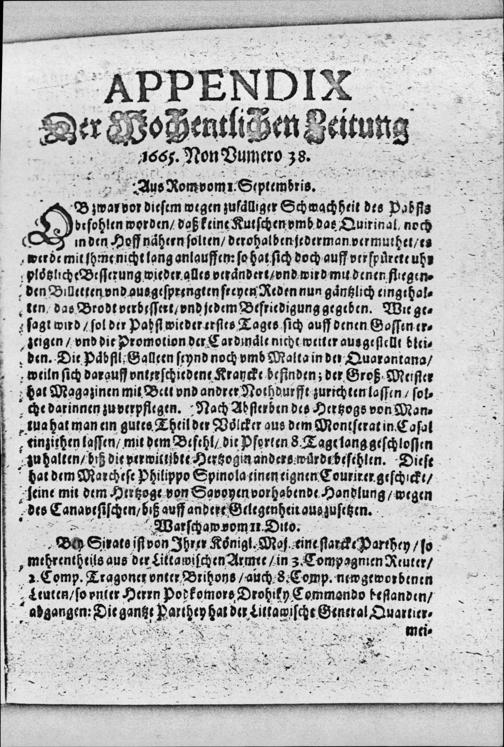 APPENDIX
Der Wochentlichen Zeitung
1665. Non Numero 38.
Aus Rom vom 1. Septembris.
OB zwar vor diesem wegen zufälliger Schwachheit des Pabsts
befohlen worden/ daß keine Kutschen vmb das Quirinal, noch
in den Hoff nähern solten/ derohalben jederman vermuthet/ es
werde mit Ihme nicht lang anlauffen: so hat sich doch auff verspürete uhr
plötzliche Besserung wieder alles verändert/ vnd wird mit denen fliegen-
den Billetten vnd ausgesprengten freyen Reden nun gäntzlich eingehal-
ten/ das Brodt verbessert/ vnd jedem Befriedigung gegeben. Wie ge-
sagt wird/ sol der Pabst wieder erstes Tages sich auff denen Gassen er-
zeigen/ vnd die Promotion der Cardinäle nicht weiter ausgestellt blei-
ben. Die Päbstl. Galleen seynd noch vmb Malta in der Quarantana/
weiln sich darauff vnterschiedene Krancke befinden; der Groß-Meister
hat Magazinen mit Bett vnd andrer Nothdurfft zurichten lassen/ sol-
che darinnen zu verpflegen. Nach Absterben des Hertzogs von Man-
tua hat man ein gutes Theil der Völcker aus dem Montferat in Casal
einziehen lassen/ mit dem Befehl/ die Pforten 8. Tage lang geschlossen
zu halten/ biß die verwittibte Hertzogin anders würde befehlen. Diese
hat dem Marchese Philippo Spinola einen eignen Courirer geschickt/
seine mit dem Hertzoge von Savoyen vorhabende Handlung/ wegen
des Canavesischen/ biß auff andere Gelegenheit auszusetzen.
Warschaw vom 11. Dito.
Bey Sirats ist von Ihrer Königl. Maj. eine starcke Parthey/ so
mehrentheils aus der Littawischen Armee/ in 3. Compagnien Reuter/
2. Comp. Tragoner vnter Brihons/ auch 8. Comp. newgeworbenen
Leuten/ so vnter Herrn Podkomors Drohiky Commando bestanden/
abgangen: Die gantze Parthey hat der Littawische General Quartier-
mei-